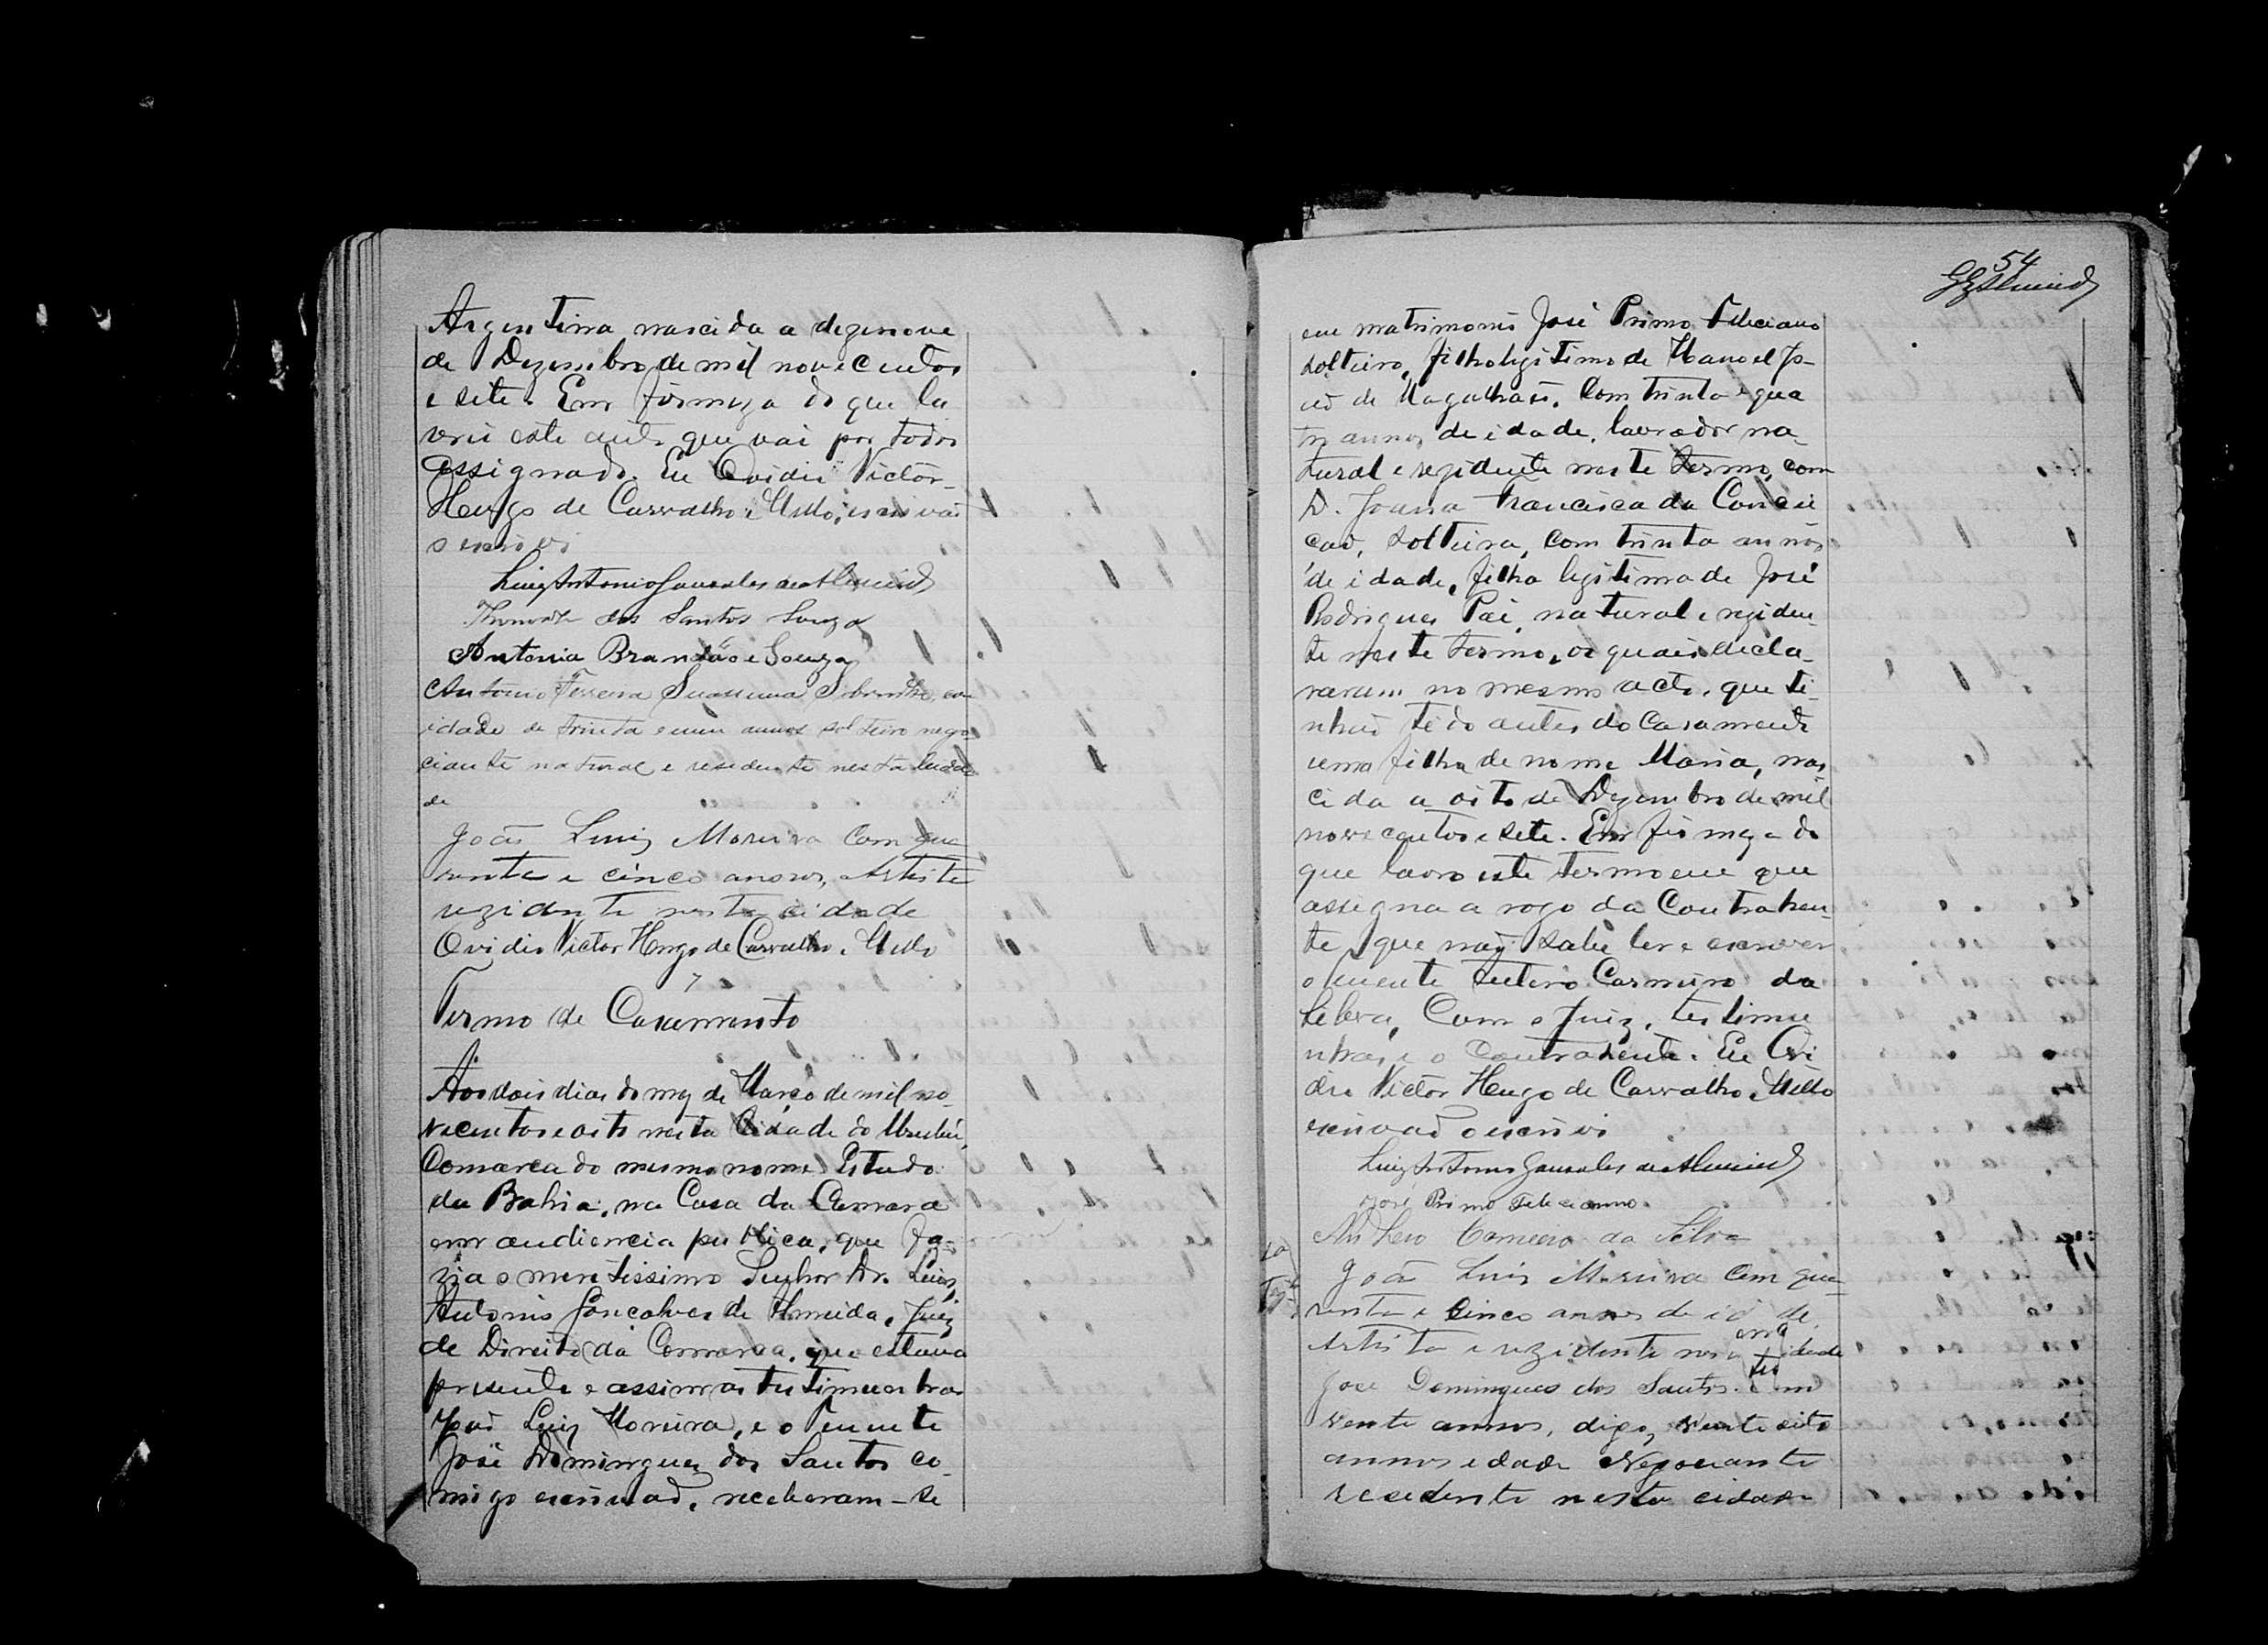 Argentina nascida a dezenove
de Dezembro de mil novecentos
e sete. Em firmeza do que la
vrei este auto que vai por todos
assignado. Eu Ovidio Victor
Hugo de Carvalho e Mello, escrivão
o escrevi
Luiz Antonio Gonsalves de Almeida
dos Santos Souza
Antonia Brandão e Souza
Antonio Ferreira Suassuna Sobrinho, com
idade de trinta e um annos solteiro nego
ciante natural e residente nesta cida
de
João Luiz Moreira com qua
renta e cinco annos, Artista
rezidente nesta cidade
Ovidio Victor Hugo de Carvalho e Mello
Termo de Casamento
Aos dois dias do mez de Março de mil no-
vecentos e oito nesta Cidade do Urubú,
Comarca do mesmo nome Estado
da Bahia, na Casa da Camara
em audiencia publica, que fa-
zia o meretissimo Senhor Dr. Luiz
Antonio Gonçalves de Almeida, Juiz
de Direito da Comarca, que estava
presente e assim as testimunhas
João Luiz Moreira, e o Tenente
José Domingues dos Santos co-
migo escrivão, receberam-se
54
GAlmeida
em matrimonio José Primo Feliciano
solteiro, filho legitimo de Manoel Jo-
sé de Magalhães, com trinta e qua
tro annos de idade, lavrador na-
tural e rezidente neste termo, com
D. Joana Francisca da Concei
cão, solteira, com trinta annos
de idade, filha legitima de José
Rodrigues Pai, natural e reziden-
te neste termo, os quais decla-
raram no mesmo acto, que ti-
nhão tido antes do Casamento
uma filha de nome Maria, nas
cida a oito de Dezembro de mil
novecentos e sete. Em firmeza do
que lavro este termo em que
assigna a rogo da Contrahen-
te, que não sabe ler e escrever
o Tenente Antero Carneiro da
Silva, Com o Juiz, testimu
nhas, e o Contrahente. Eu Ovi
dio Victor Hugo de Carvalho e Mello
escrivão o escrevi
Luiz Antonio Gonsalves de Almeida
José Primo Felicianno.
Anthero Carneiro da Silva
João Luiz Moreira com qua-
renta e cinco annos de idade,
Artista e rezidente nesta cidade
José Domingues dos Santos com
vente annos, digo, vente oito
annos edade Negociante
resedente nesta cidade